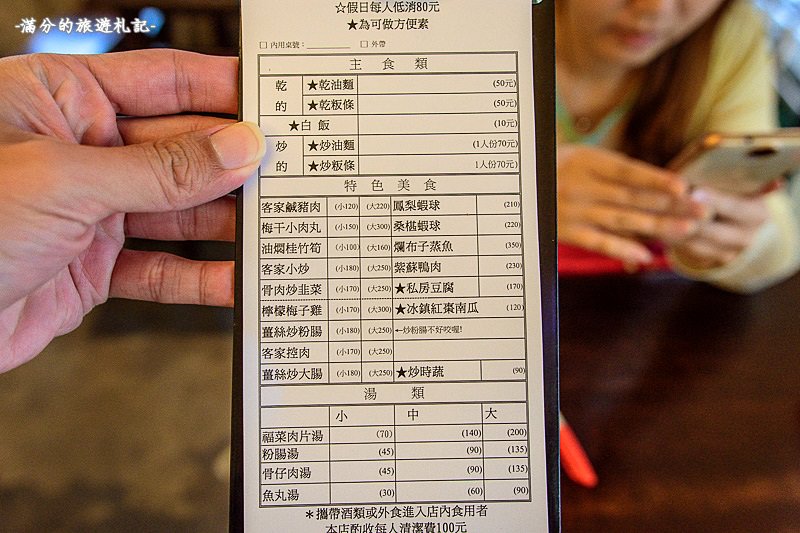 -滿分的旅遊札記-
☆假日每人低消80元
★為可做方便素
□ 內用桌號：________ □ 外帶
主 食 類
乾的 ★乾油麵 (50元)
★乾粄條 (50元)
★白 飯 (10元)
炒的 ★炒油麵 (1人份70元)
★炒粄條 1人份70元)
特 色 美 食
客家鹹豬肉 (小120) (大220) 鳳梨蝦球 (210)
梅干小肉丸 (小150) (大300) 桑椹蝦球 (220)
油燜桂竹筍 (小100) (大160) 爛布子蒸魚 (350)
客家小炒 (小180) (大250) 紫蘇鴨肉 (230)
骨肉炒韭菜 (小170) (大250) ★私房豆腐 (170)
檸檬梅子雞 (小170) (大300) ★冰鎮紅棗南瓜 (120)
薑絲炒粉腸 (小180) (大250) ←炒粉腸不好咬喔!
客家控肉 (小170) (大250)
薑絲炒大腸 (小180) (大250) ★炒時蔬 (90)
湯 類
小 中 大
福菜肉片湯 (70) (140) (200)
粉腸湯 (45) (90) (135)
骨仔肉湯 (45) (90) (135)
魚丸湯 (30) (60) (90)
＊攜帶酒類或外食進入店內食用者
本店酌收每人清潔費100元